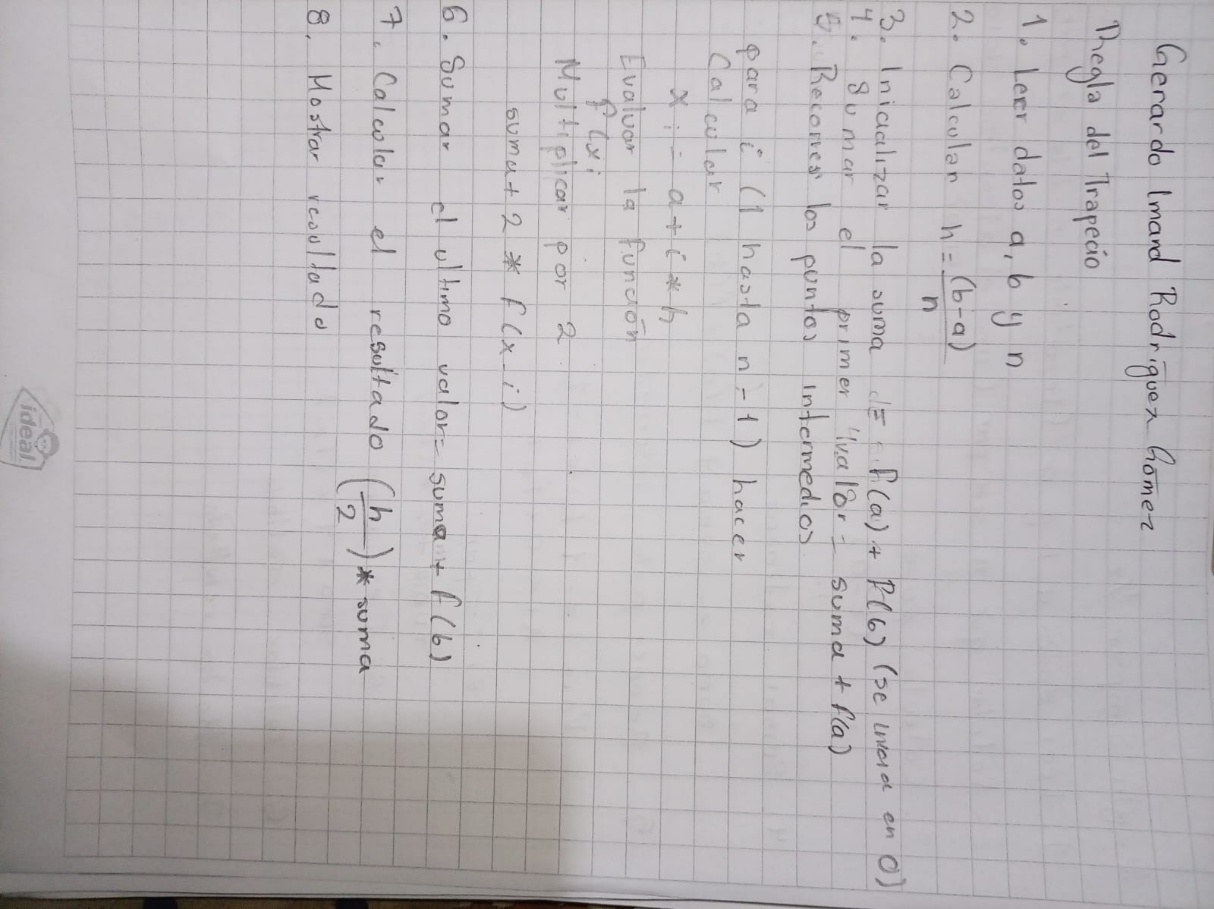 Gerardo Imanol Rodríguez Gómez
Regla del Trapecio
1. Leer datos a, b y n
2. Calcular h = (b-a)
n
3. Inicializar la suma = f(a) + f(b) (se inicia en 0)
4. Sumar el primer valor = suma + f(a)
5. Recorrer los puntos intermedios
para i (1 hasta n-1) hacer
Calcular
xi = a+i*h
Evaluar la función
f(xi
Multiplicar por 2
suma+ 2 * f(x_i)
6. Sumar el ultimo valor= suma+ f(b)
7. Calcular el resultado (h/2)* suma
8. Mostrar resultado
ideal